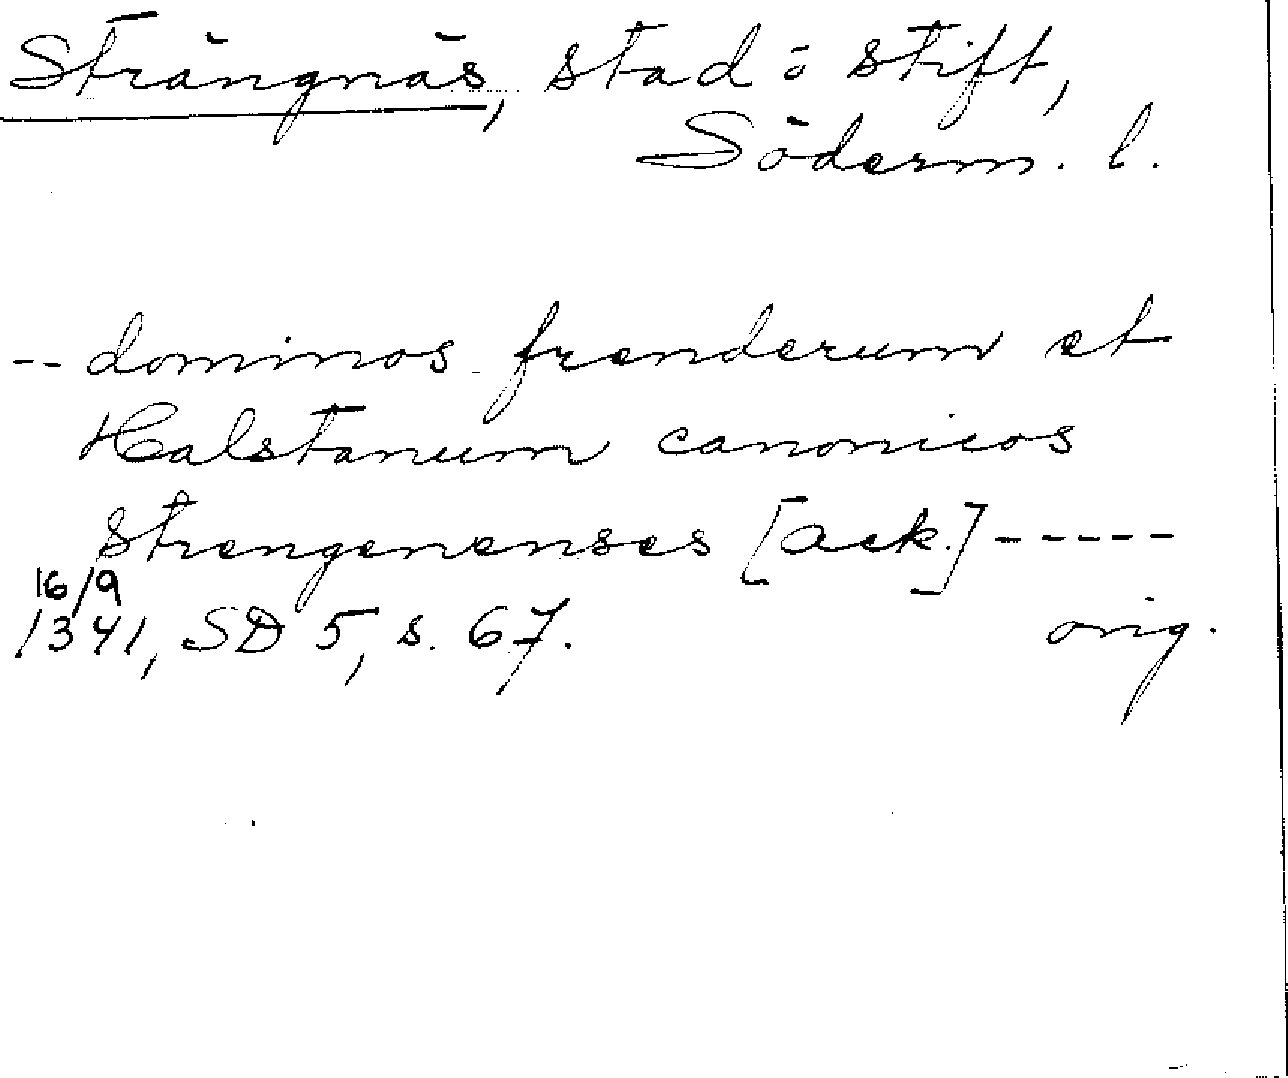 Strängnäs, stad o stift,
Söderm. l.
-- dominos frenderum et
Halstanum canonicos
strengenenses [ack.] -----
16/9
1341, SD 5, s. 67. orig.